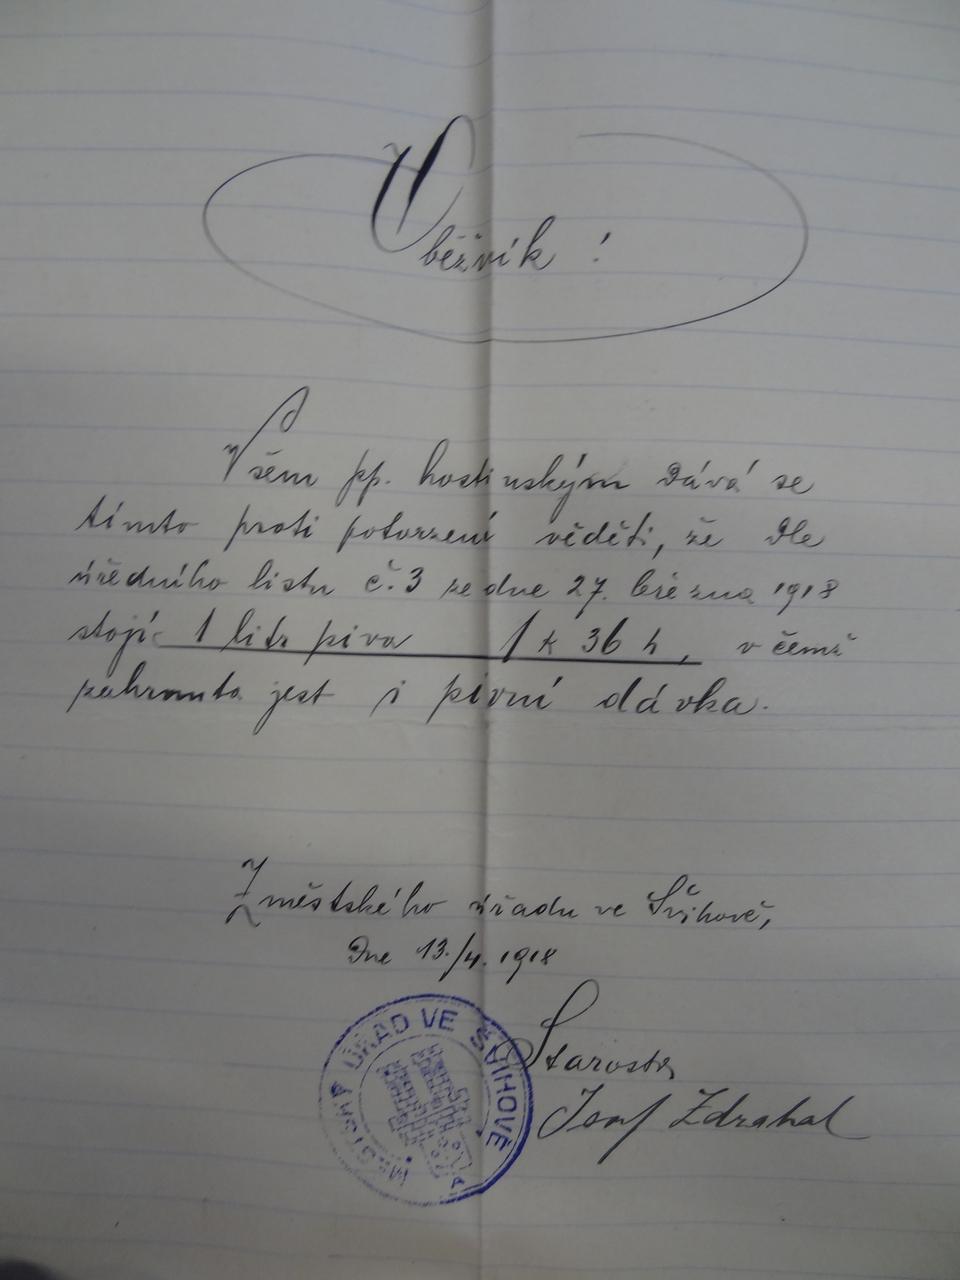 Oběžník!
Všem pp. hostinským dává se
tímto proti potvrzení věděti, že dle
úředního listu č. 3 ze dne 27. března 1918
stojí 1 litr piva 1 K 36 h, v čemž
zahrnuta jest i pivní dávka.
Z městského úřadu ve Švihově,
Dne 13./4. 1918
MĚSTSKÝ ÚŘAD VE ŠVIHOVĚ
Starosta
Josef Zdrahal